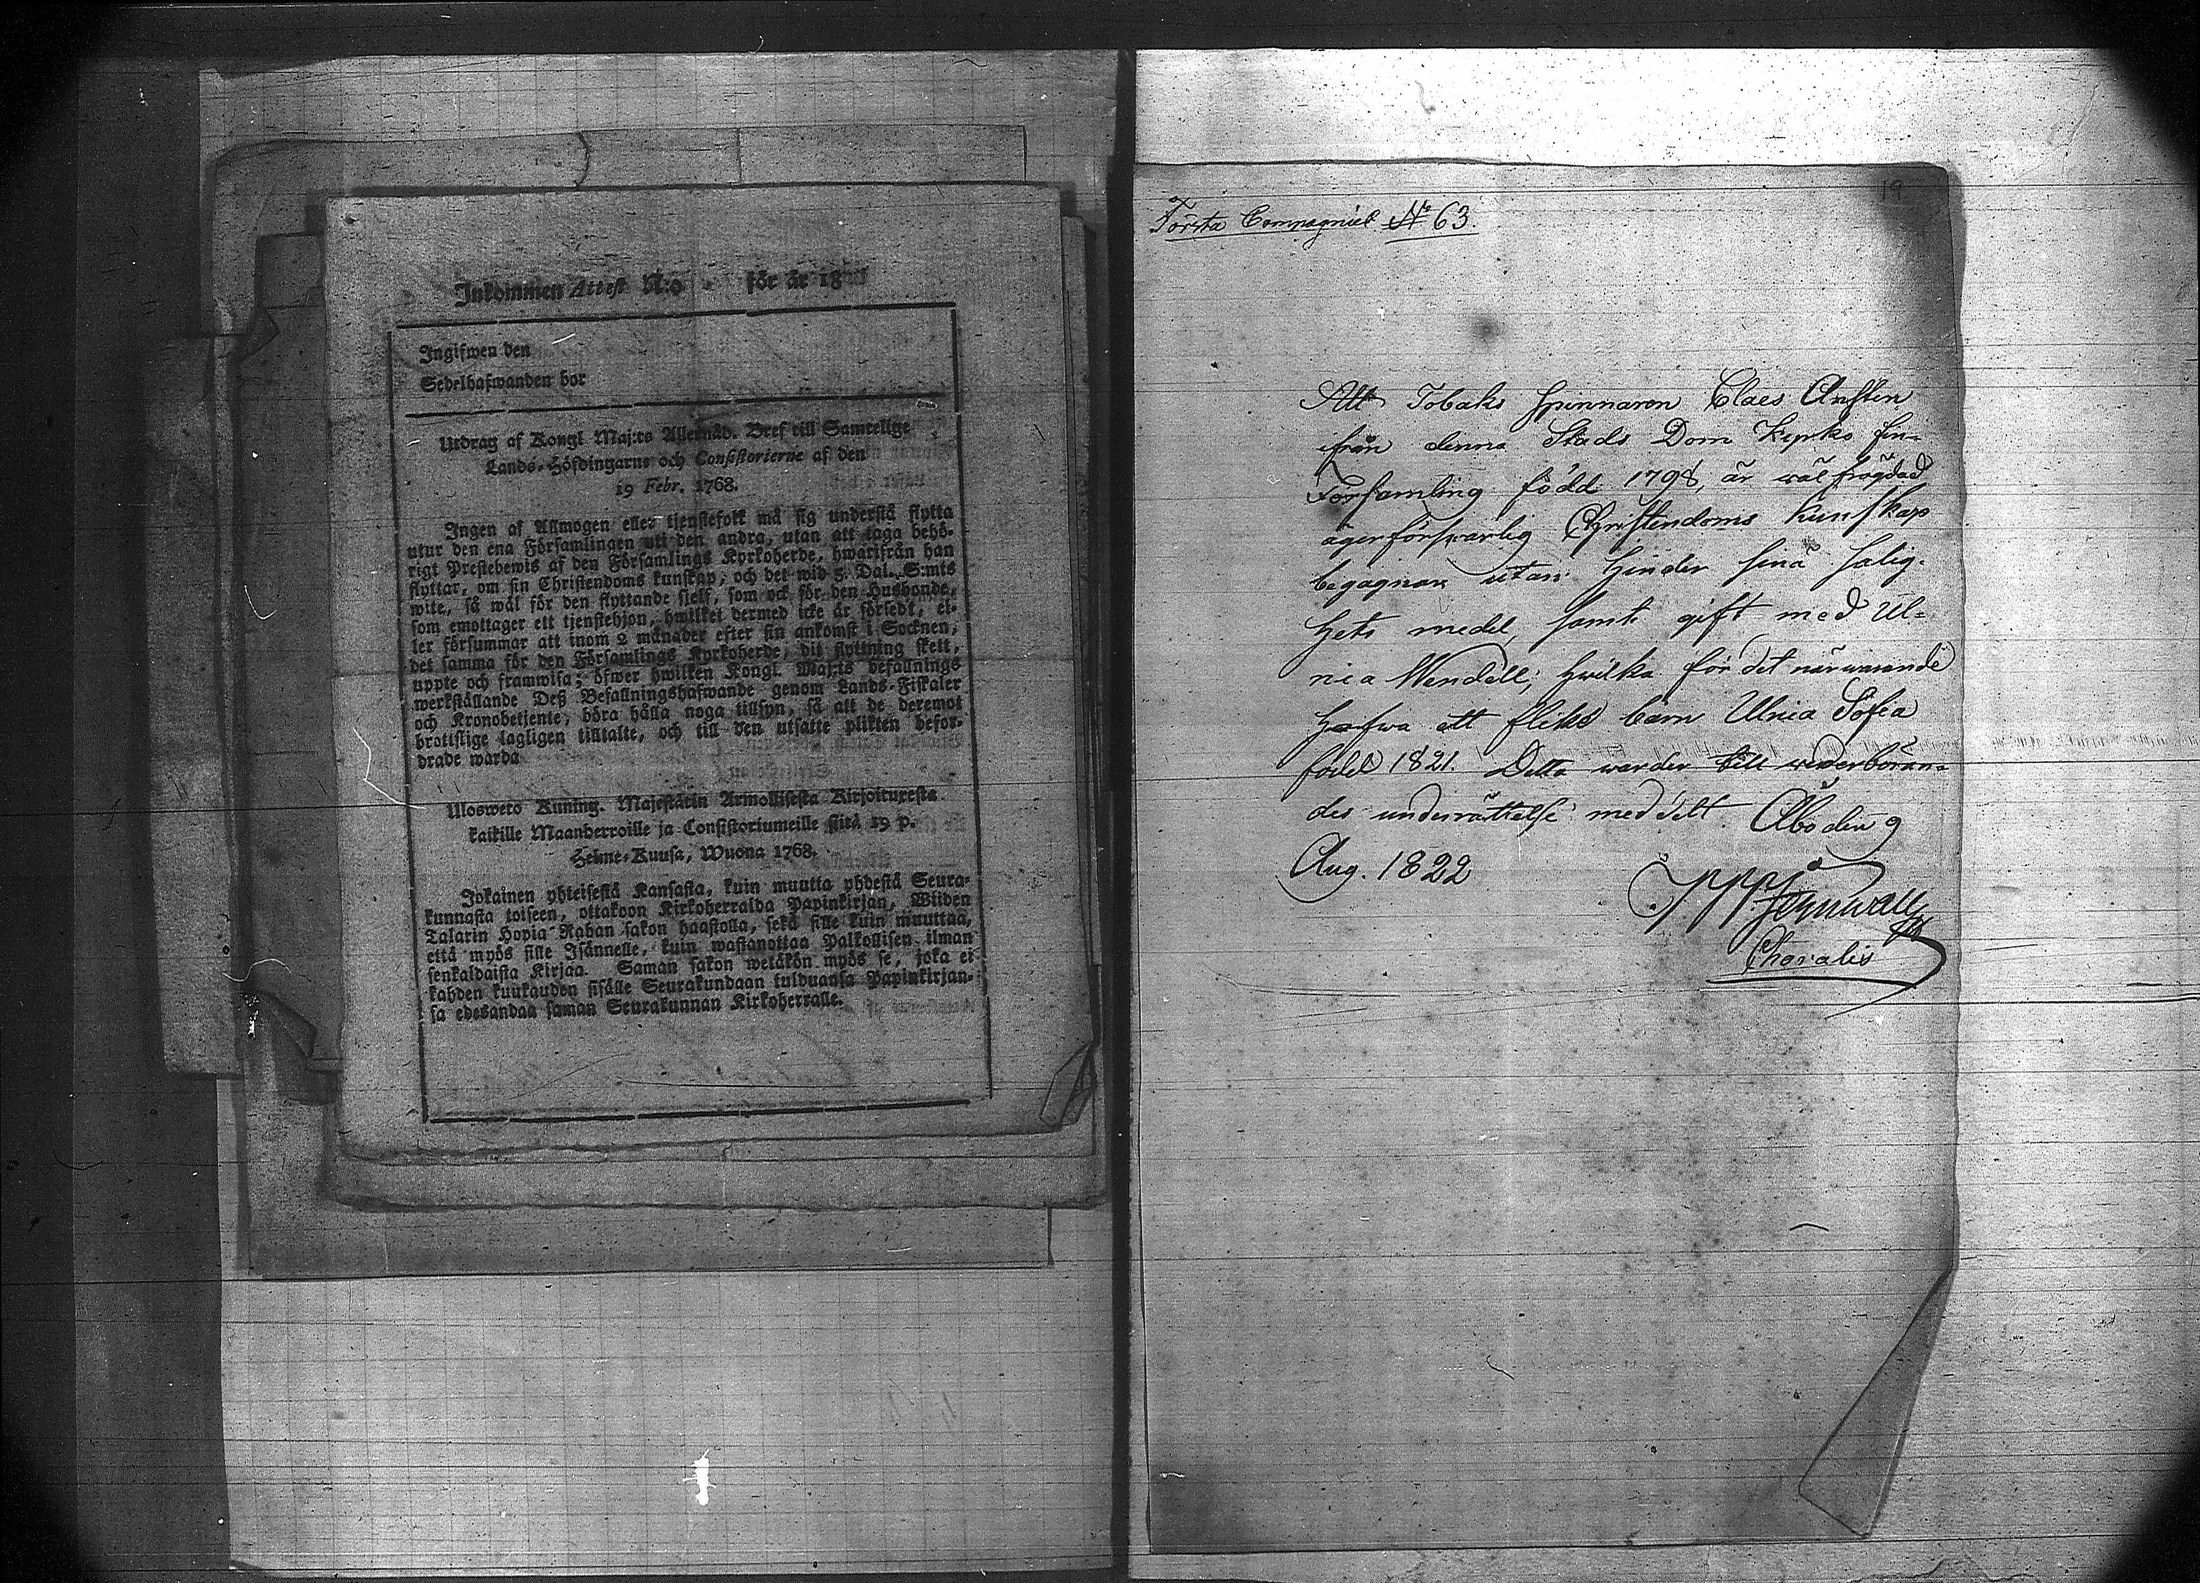 Inkommen Attest N:o för år 18
Ingifwen den
Sedelhafwanden bor
Utdrag af Kongl Maj:ts Allernåd. Bref till Samtelige
Lands-Höfdingarne och Consistorierne af den
19 Febr. 1768.
Ingen af Allmogen eller tjenstefolk må sig understå flytta
utur den ena Församlingen uti den andra, utan att taga behö-
rigt Prestebewis af den Församlings Kyrkoherde, hwarifrån han
flyttar, om sin Christendoms kunskap, och det wid 5. Dal. S:mts
wite, så wäl för den flyttande sielf, som ock för den Husbonde,
som emottager ett tjenstehjon, hwilket dermed icke är försedt, el-
ler försummar att inom 2 månader efter sin ankomst i Socknen,
det samma för den Församlings Kyrkoherde, dit flyttning skett,
uppte och framwisa; öfwer hwilken Kongl. Maj:ts befallnings
werkställande Deß Befallningshafwande genom Lands-Fiskaler
och Kronobetjente, böra hålla noga tillsyn, så att de deremot
brottslige lagligen tilltalte, och till den utsatte plikten befor-
drade warda
Ulosweto Kuning. Majestätin Armollisesta Kirjoituxesta
kaikille Maanherroille ja Consistoriumeille siitä 19 p.
Helme-Kuusa, Wuona 1768.
Jokainen yhteisestä Kansasta, kuin muutta yhdestä Seura-
kunnasta toiseen, ottakoon Kirkoherralda Papinkirjan, Wiiden
Talarin Hopia Rahan sakon haastolla, sekä sille kuin muuttaa,
että myös sille Isännelle, kuin wastanottaa Palkollisen ilman
senkaldaista Kirjaa. Saman sakon wetäkön myös se, joka ei
kahden kuukauden sisälle Seurakundaan tulduansa Papinkirjan-
sa edesandaa saman Seurakunnan Kirkoherralle.
19
Första Compagniet N° 63.
Att Tobaks spinnaren Claes Anstén
från denna Stads Dom Kyrko fin-
Församling född 1798, är wäl frägdad
äger förswarlig Christendoms kunskap
begagnar utan hinder sina salig-
hets medel, samt gift med Ul-
rica Wendell; hwilka för det närwarande
hafwa ett flicko barn Ulrica Sofia
född 1821. Detta warder till wederböran-
des underrättelse meddelt. Åbo den 9
Aug. 1822
Choralis